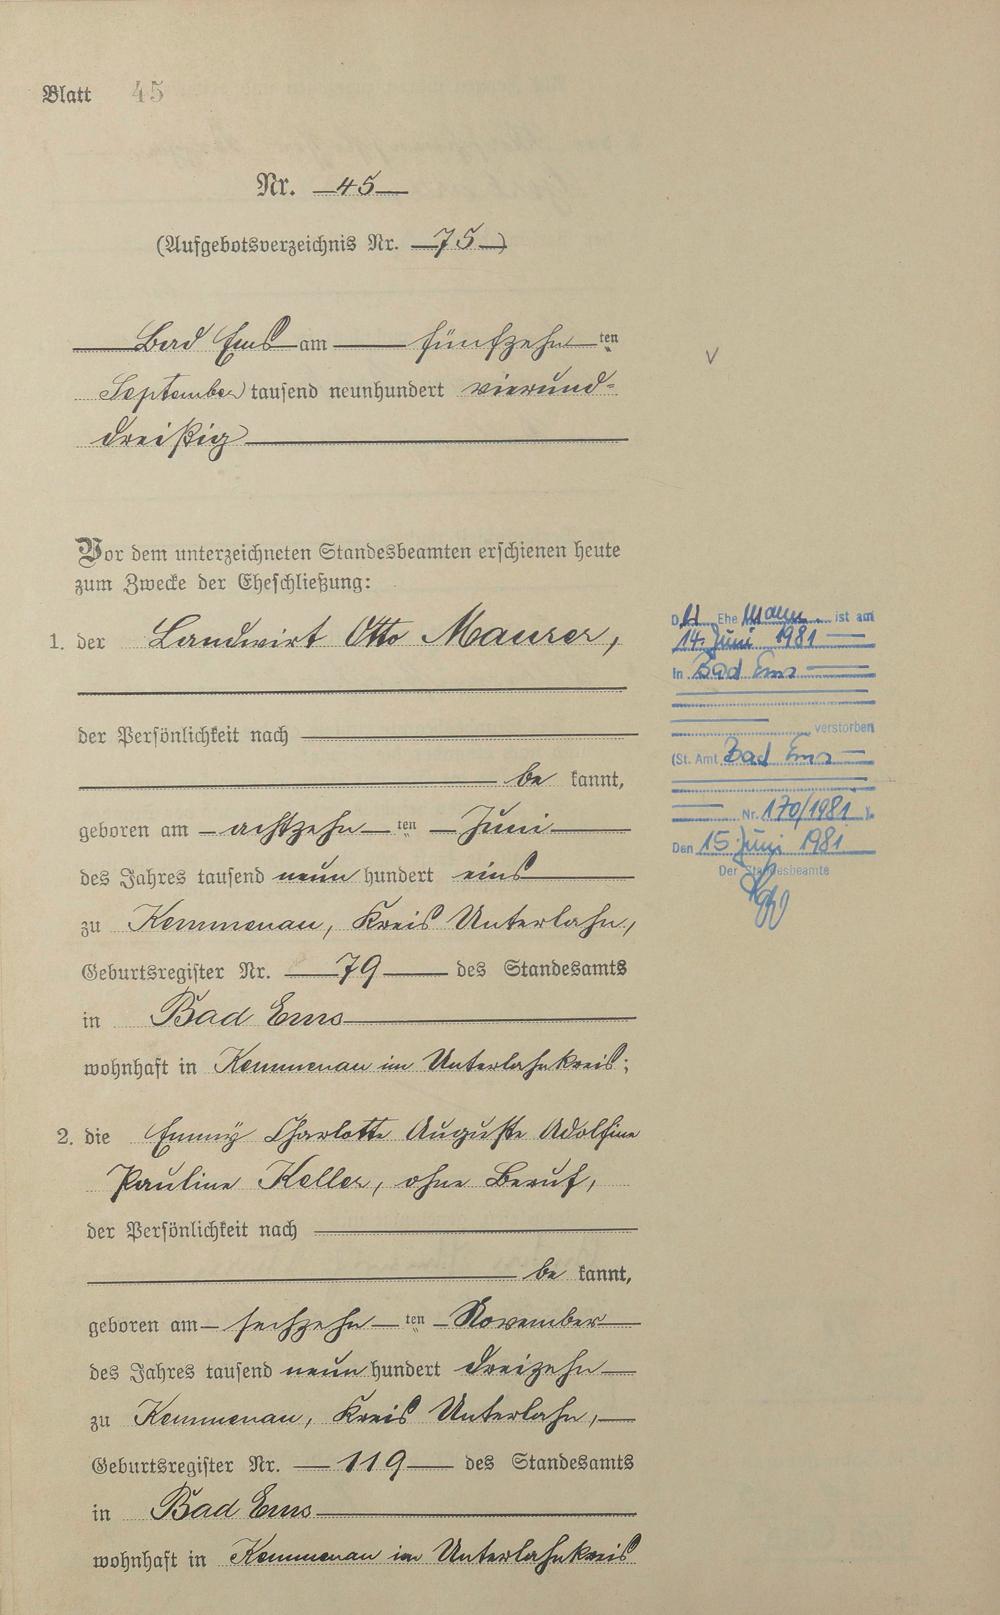 Blatt 45
Nr. 45
(Aufgebotsverzeichnis Nr. 75)
Bad Ems am fünfzehn ten
September tausend neunhundert vierund-
dreißig
Vor dem unterzeichneten Standesbeamten erschienen heute
zum Zwecke der Eheschließung:
1. der Landwirt Otto Maurer,
der Persönlichkeit nach
be kannt,
geboren am achtzehn ten Juni
des Jahres tausend neun hundert eins
zu Kemmenau, Kreis Unterlahn,
Geburtsregister Nr. 79 des Standesamts
in Bad Ems
wohnhaft in Kemmenau im Unterlahnkreis;
2. die Emmy Charlotte Auguste Adolfine
Pauline Keller, ohne Beruf,
der Persönlichkeit nach
be kannt,
geboren am sechzehn ten November
des Jahres tausend neun hundert dreizehn
zu Kemmenau, Kreis Unterlahn,
Geburtsregister Nr. 119 des Standesamts
in Bad Ems
wohnhaft in Kemmenau im Unterlahnkreis
Der Ehe mann ist am
14. Juni 1981
in Bad Ems
verstorben
(St. Amt Bad Ems
Nr. 170/1981).
Den 15. Juni 1981
Der Standesbeamte